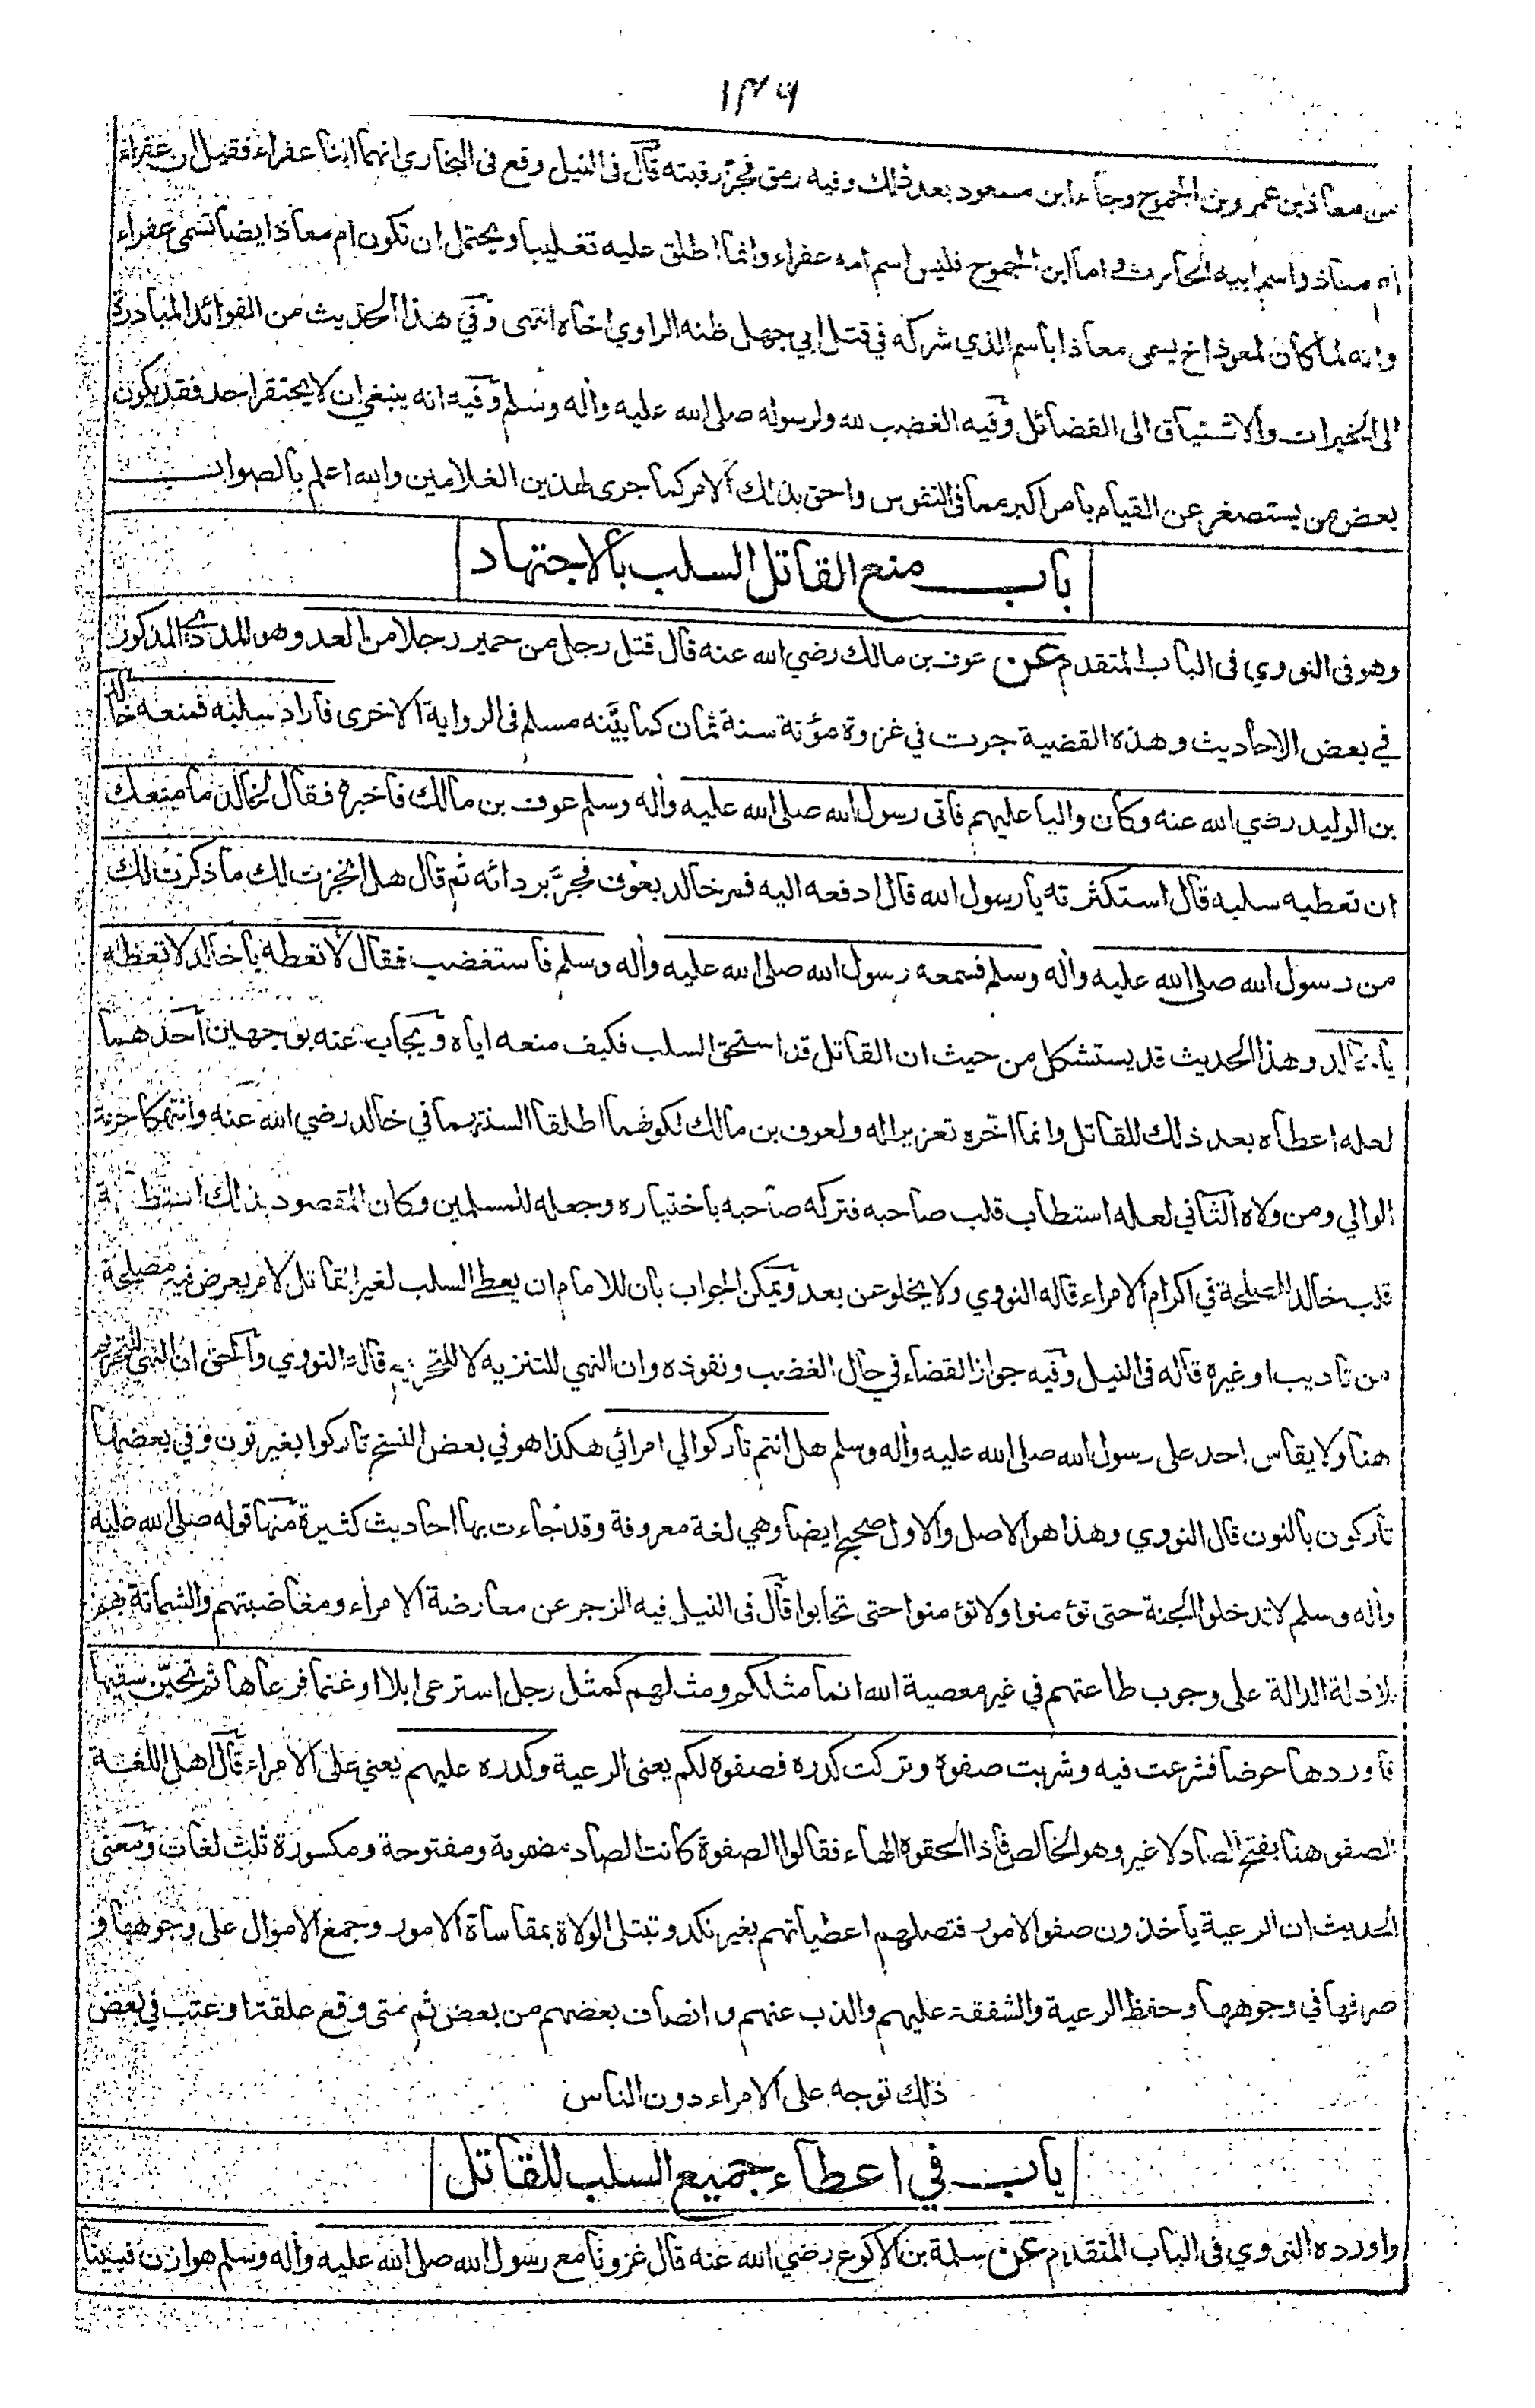 ١٣٩
من معاذ بن عمرو بن الجموح وجاء ابن مسعود بعد ذلك وفيه رمق فجز رقبته قال فى النيل وقع فى البخاري انهما ابنا عفراء فقيل ان عفراء
ام معاذ واسم ابيه الحارث واما ابن الجموح فليس اسم امه عفراء وانما اطلق عليه تغليبا ويحتمل ان تكون ام معاذ ايضا تسمى عفراء
وانه لما كان لمعوذ اخ يسمى معاذا باسم الذي شركه في قتل ابي جهل ظنه الراوي اخاه انتهى وفي هذا الحديث من الفوائد المبادرة
الى الخيرات والاشتياق الى الفضائل وفيه الغضب لله ولرسوله صلى الله عليه وأله وسلم وفيه انه ينبغي ان لا يحتقر احد فقد يكون
بعض من يستصغر عن القيام بامر اكبر مما فى النفوس واحق بذلك الامر كما جرى لهذين الغلامين والله اعلم بالصواب
باب منع القاتل السلب بالاجتهاد
وهو فى النووي فى الباب المتقدم عن عوف بن مالك رضي الله عنه قال قتل رجل من حمير رجلا من العدو وهو المددي المذكور
في بعض الاحاديث وهذه القضية جرت في غزوة مؤتة سنة ثمان كما بيّنه مسلم فى الرواية الاخرى فاراد سلبه فمنعه خالد
بن الوليد رضي الله عنه وكان واليا عليهم فاتى رسول الله صلى الله عليه وأله وسلم عوف بن مالك فاخبره فقال لخالد ما منعك
ان تعطيه سلبه قال استكثرته يا رسول الله قال ادفعه اليه فمر خالد بعوف فجرّ بردائه ثم قال هل انجزت لك ما ذكرت لك
من رسول الله صلى الله عليه وأله وسلم فسمعه رسول الله صلى الله عليه وأله وسلم فاستغضب فقال لا تعطه يا خالد لا تعطه
يا خالد وهذا الحديث قد يستشكل من حيث ان القاتل قد استحق السلب فكيف منعه اياه ويجاب عنه بوجهين احدهما
لعله اعطاه بعد ذلك للقاتل وانما اخره تعزيرا له ولعوف بن مالك لكونهما اطلقا السنتهما في خالد رضي الله عنه وانتهكا حرمة
الوالي ومن ولاه الثاني لعله استطاب قلب صاحبه فتركه صاحبه باختياره وجعله للمسلمين وكان المقصود بذلك استطابة
قلب خالد للمصلحة في اكرام الامراء قاله النووي ولا يخلو عن بعد ويمكن الجواب بان للامام ان يعطي السلب لغير القاتل لامر يعرض فيه مصلحة
من تاديب او غيره قاله فى النيل وفيه جواز القضاء في حال الغضب ونفوذه وان النهي للتنزيه لا للتحريم قاله النووي والحق ان النهي للتحريم
هنا ولا يقاس احد على رسول الله صلى الله عليه وأله وسلم هل انتم تاركوا لي امرائي هكذا هو في بعض النسخ تاركوا بغير نون وفي بعضها
تاركون بالنون قال النووي وهذا هو الاصل والاول صحيح ايضا وهي لغة معروفة وقد جاءت بها احاديث كثيرة منها قوله صلى الله عليه
وأله وسلم لا تدخلوا الجنة حتى تؤمنوا ولا تؤمنوا حتى تحابوا قال فى النيل فيه الزجر عن معارضة الامراء ومغاضبتهم والشماتة بهم
للادلة الدالة على وجوب طاعتهم في غير معصية الله انما مثلكم ومثلهم كمثل رجل استرعى ابلا او غنما فرعاها ثم تحيّن سقيها
فاوردها حوضا فشرعت فيه وشربت صفوه وتركت كدره فصفوه لكم يعنى الرعية وكدره عليهم يعني على الامراء قال اهل اللغة
الصفو هنا بفتح الصاد لا غير وهو الخالص فاذا الحقوه الهاء فقالوا الصفوة كانت الصاد مضمومة ومفتوحة ومكسورة ثلث لغات ومعنى
الحديث ان الرعية ياخذون صفو الامور فتصلهم اعطياتهم بغير نكد وتبتلى الولاة بمقاساة الامور وجمع الاموال على وجوهها و
صرفها في وجوهها وحفظ الرعية والشفقة عليهم والذب عنهم وانصاف بعضهم من بعض ثم متى وقع علقة او عتب في بعض
ذلك توجه على الامراء دون الناس
باب في اعطاء جميع السلب للقاتل
واورده النووي فى الباب المتقدم عن سلمة بن الاكوع رضي الله عنه قال غزونا مع رسول الله صلى الله عليه وأله وسلم هوازن فبينا